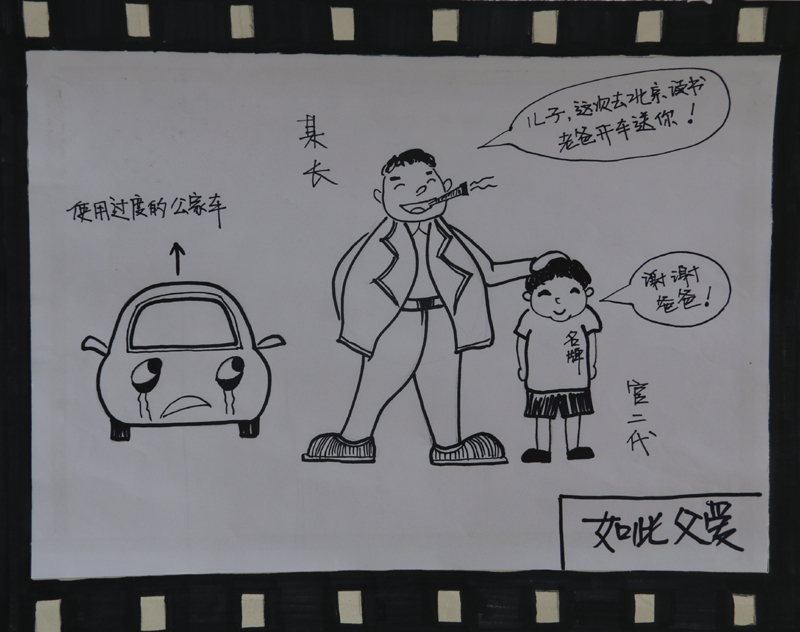 某长
儿子,这次去北京读书
老爸开车送你!
使用过度的公家车
谢谢
爸爸!
名牌
官二代
如此父爱